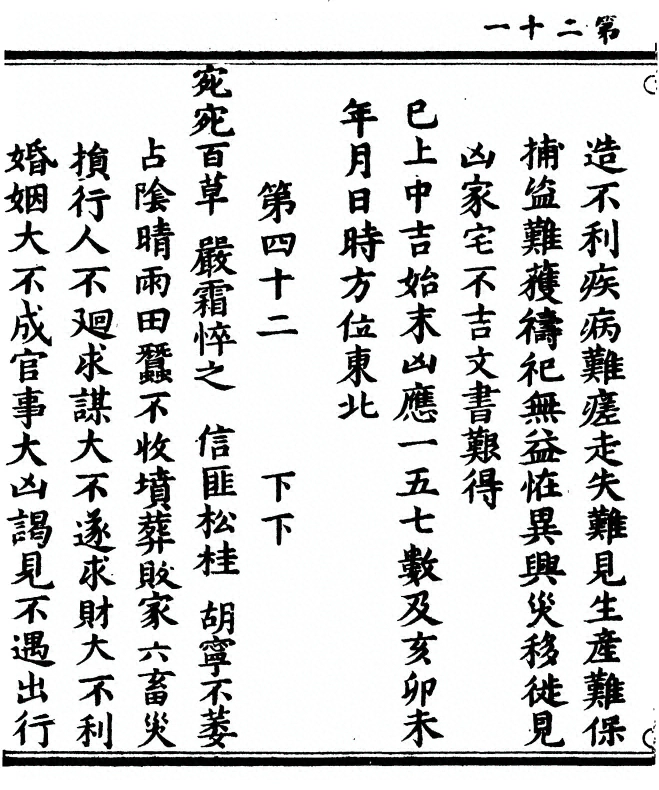 第二十一
造不利疾病難瘥走失難見生產難保
捕盜難獲禱祀無益恠異興災移徙見
凶家宅不吉文書艱得
巳上中吉始末凶應一五七數及亥卯未
年月日時方位東北
第四十二 下下
宛宛百草 嚴霜悴之 信匪松桂 胡寧不萎
占陰晴雨田蠶不收墳葬敗家六畜災
損行人不廻求謀大不遂求財大不利
婚姻大不成官事大凶謁見不遇出行